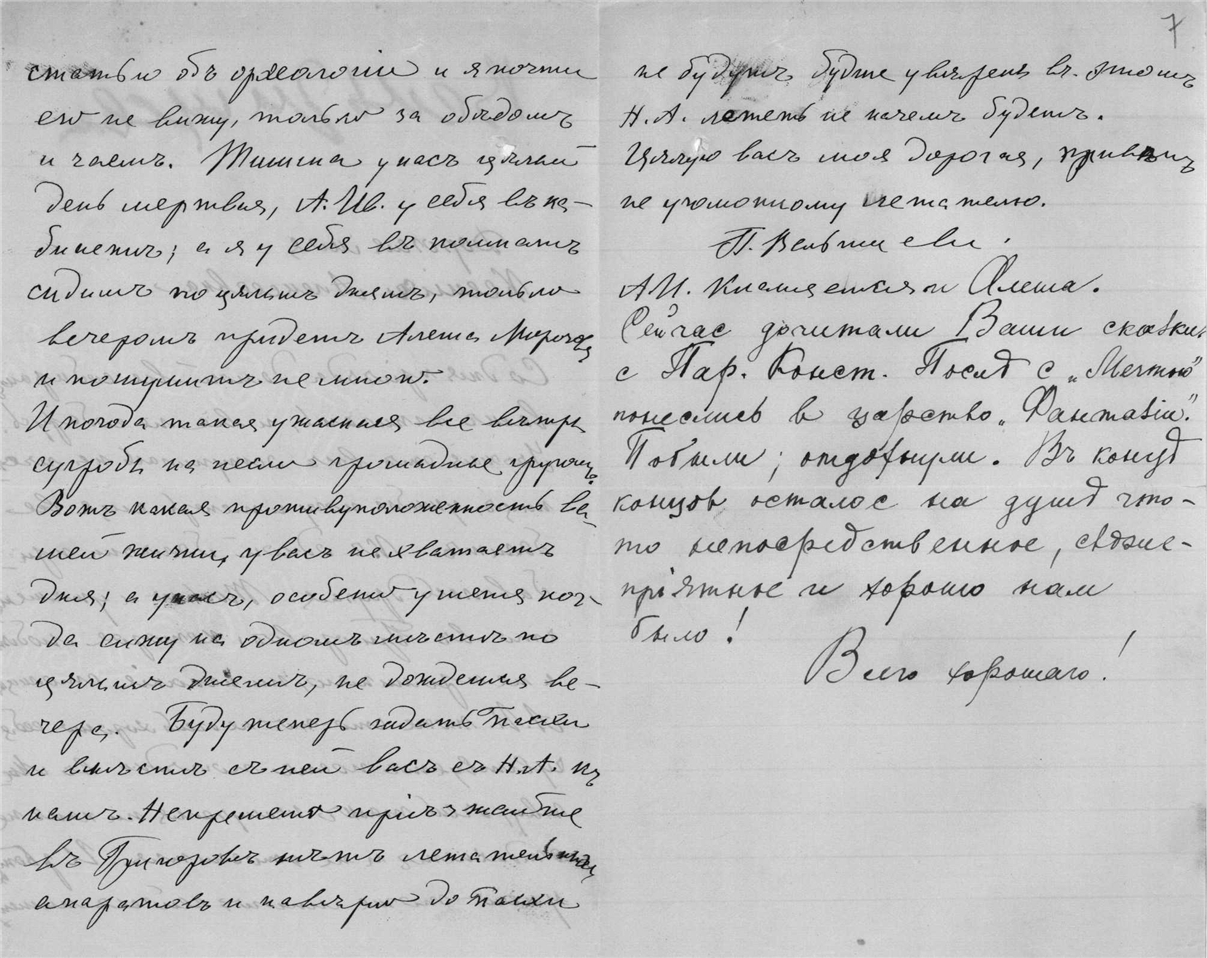 статью объ орхеологіи и я почти
его не вижу, только за обѣдомъ
и чаемъ. Тишина у насъ цѣлый
день мертвая, А. Ив. у себя въ ка-
бинетѣ; а я у себя въ комнатѣ
сидимъ по цѣлымъ днямъ, только
вечеромъ придетъ Алеша
и пошумитъ немного.
И погода такая ужасная все вѣтры
сугробы на несло громадные
Вотъ какая противуположенность ва-
шей жизни, у васъ не хватаетъ
дня; а у насъ, особено у меня ког-
да сижу на одномъ мѣстѣ по
цѣлымъ днемъ, не дождешся ве-
чера. Буду теперь ждать Пасхи
и вмѣстѣ съ ней васъ съ Н.А. къ
намъ. Непремено пріѣзжайте
въ Григоровѣ нѣтъ летательныхъ
апаратовъ и навѣрно до Пасхи
7
не будутъ, будте увѣрены въ этомъ
Н.А. лететь не начемъ будетъ.
Цѣлую васъ моя дорогая, привѣтъ
не угомонному летателю.
П.
А.И. и Алеша.
Сейчас дочитали Ваши сказки
с Пар. Конст. Послѣ с „Мечтою"
понеслись в царство „Фантазіи".
Побыли; отдохнули. Въ концѣ
концов осталос на душѣ что-
то непосредственное, свѣже-
пріятное и хорошо нам
было!
Всего хорошаго!